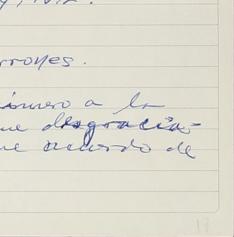 rrones.
número a la
ue desgracia-
ue acuerdo de